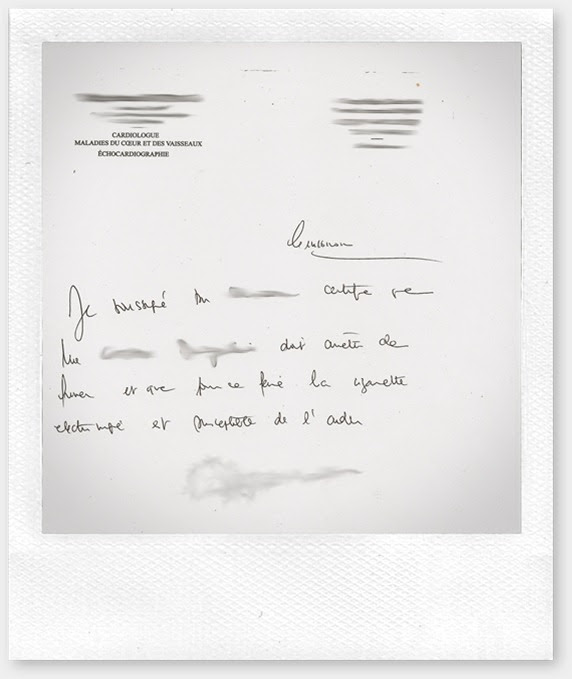 CARDIOLOGUE
MALADIES DU CŒUR ET DES VAISSEAUX
ÉCHOCARDIOGRAPHIE
Je soussigné Dr certifie que
doit arrêter de
fumer et que pour ce faire la cigarette
électronique est susceptible de l'aider